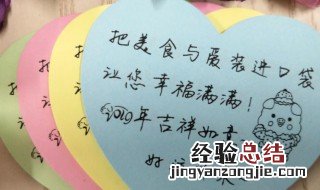 把美食与爱装进口袋
让您幸福满满！
2019年吉祥如意
好
经验总结
www.jingyanzongjie.com